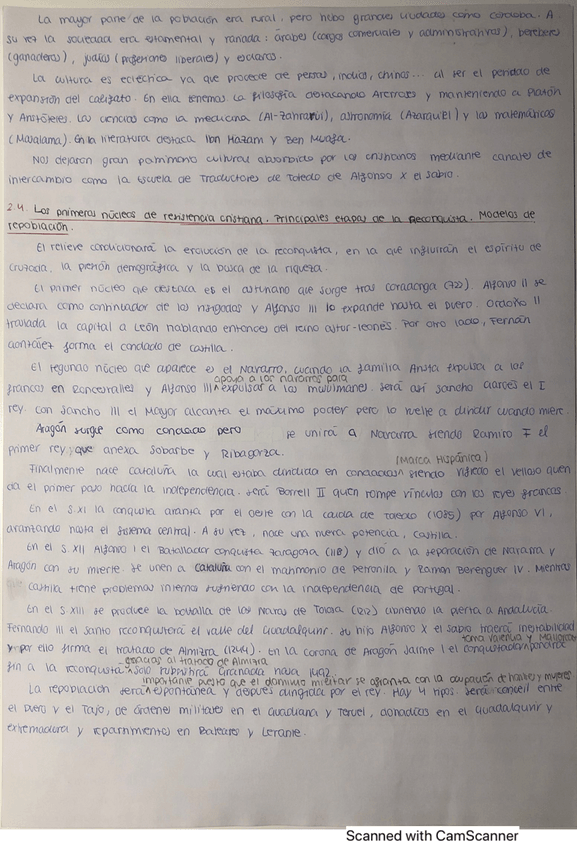 La mayor parte de la población era rural, pero hubo grandes ciudades como Córdoba. A
su vez la sociedad era estamental y variada: árabes (cargos comerciales y administrativos), bereberes
(ganaderos), judíos (profesiones liberales) y esclavos.
La cultura es ecléctica ya que procede de persas, indios, chinos... al ser el periodo de
expansión del califato. En ella tenemos la filosofía destacando Averroes y manteniendo a Platón
y Aristóteles. Las ciencias como la medicina (Al-Zahrawi), astronomía (Azarquiel) y las matemáticas
(Maslama). En la literatura destaca Ibn Hazam y Ben Muafa.
Nos dejaron gran patrimonio cultural absorbido por los cristianos mediante canales de
intercambio como la Escuela de Traductores de Toledo de Alfonso X el Sabio.
2.4. Los primeros núcleos de resistencia cristiana. Principales etapas de la Reconquista. Modelos de
repoblación.
El relieve condicionará la evolución de la reconquista, en la que influirán el espíritu de
cruzada, la presión demográfica y la busca de la riqueza.
El primer núcleo que destaca es el asturiano que surge tras Covadonga (722). Alfonso II se
declara como continuador de los visigodos y Alfonso III lo expande hasta el Duero. Ordoño II
traslada la capital a León hablando entonces del reino astur-leonés. Por otro lado, Fernán
González forma el condado de Castilla.
El segundo núcleo que aparece es el Navarro, cuando la familia Arista expulsa a los
francos en Roncesvalles y Alfonso III apoya a los navarros para expulsar a los musulmanes. Será así Sancho Garcés el I
rey. Con Sancho III el Mayor alcanza el máximo poder pero lo vuelve a dividir cuando muere.
Aragón surge como condado pero se unirá a Navarra siendo Ramiro I el
primer rey, que anexa Sobarbe y Ribagorza.
Finalmente nace Cataluña la cual estaba dividida en condados (Marca Hispánica) siendo Vifredo el Velloso quien
da el primer paso hacia la independencia. Será Borrell II quien rompe vínculos con los reyes francos.
En el S.XI la conquista avanza por el oeste con la caída de Toledo (1085) por Alfonso VI,
avanzando hasta el sistema central. A su vez, nace una nueva potencia, Castilla.
En el S.XII Alfonso I el Batallador conquista Zaragoza (1118) y dió a la separación de Navarra y
Aragón con su muerte. Se unen a Cataluña con el matrimonio de Petronila y Ramon Berenguer IV. Mientras
Castilla tiene problemas internos sufriendo con la independencia de Portugal.
En el S.XIII se produce la batalla de las Navas de Tolosa (1212) abriendo la puerta a Andalucía.
Fernando III el santo reconquistará el valle del Guadalquivir. Su hijo Alfonso X el sabio traerá inestabilidad
y por ello firma el tratado de Almizra (1244). En la Corona de Aragón Jaime I el conquistador toma Valencia y Mallorca pondrá
fin a la reconquista gracias al tratado de Almizra. Solo subsistirá Granada hasta 1492.
La repoblación será importante puesto que el dominio militar se afianza con la ocupación de hombres y mujeres espontánea y después dirigida por el rey. Hay 4 tipos. Será: conceil entre
el Duero y el Tajo, de órdenes militares en el Guadiana y Teruel, donadíos en el Guadalquivir y
extremadura y repartimientos en Baleares y Levante.
Scanned with CamScanner